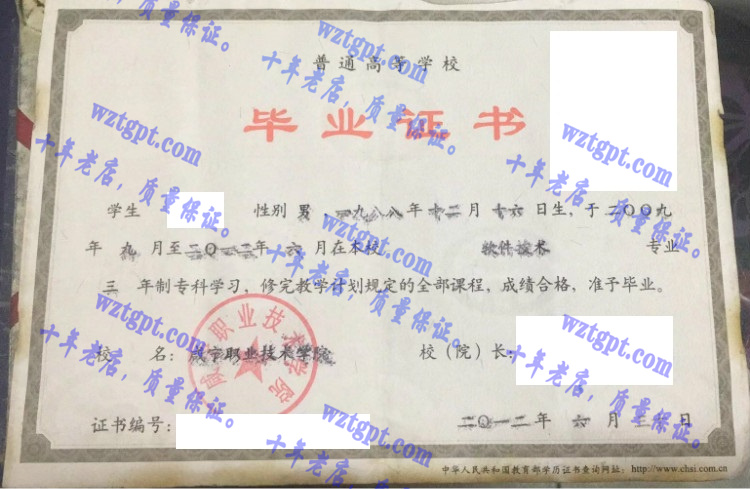 普通高等学校
毕业证书
学生 性别 男 ，一九八八年十二月十六日生，于二〇〇九
年 九 月至二〇一二年 六 月在本校 软件技术 专业
三 年制专科学习，修完教学计划规定的全部课程，成绩合格，准予毕业。
校 名：咸宁职业技术学院 校（院）长：
咸宁职业技术学院
证书编号： 二〇一二年 六 月 日
中华人民共和国教育部学历证书查询网址：http://www.chsi.com.cn
质量保证。
wztgpt.com
十年老店，质量保证。
wztgpt.com
十年老店，质量保证。
wztgpt.com
十年老店，质量保证。
wztgpt.com
十年老店，质量保证。
wztgpt.com
十年老店，质量保证。
wztgpt.com
十年老店，质量保证。
wztgpt.com
十年老店，质量保证。
wztgpt.com
十年老店，质量保证。
wztgpt.com
十年老店，